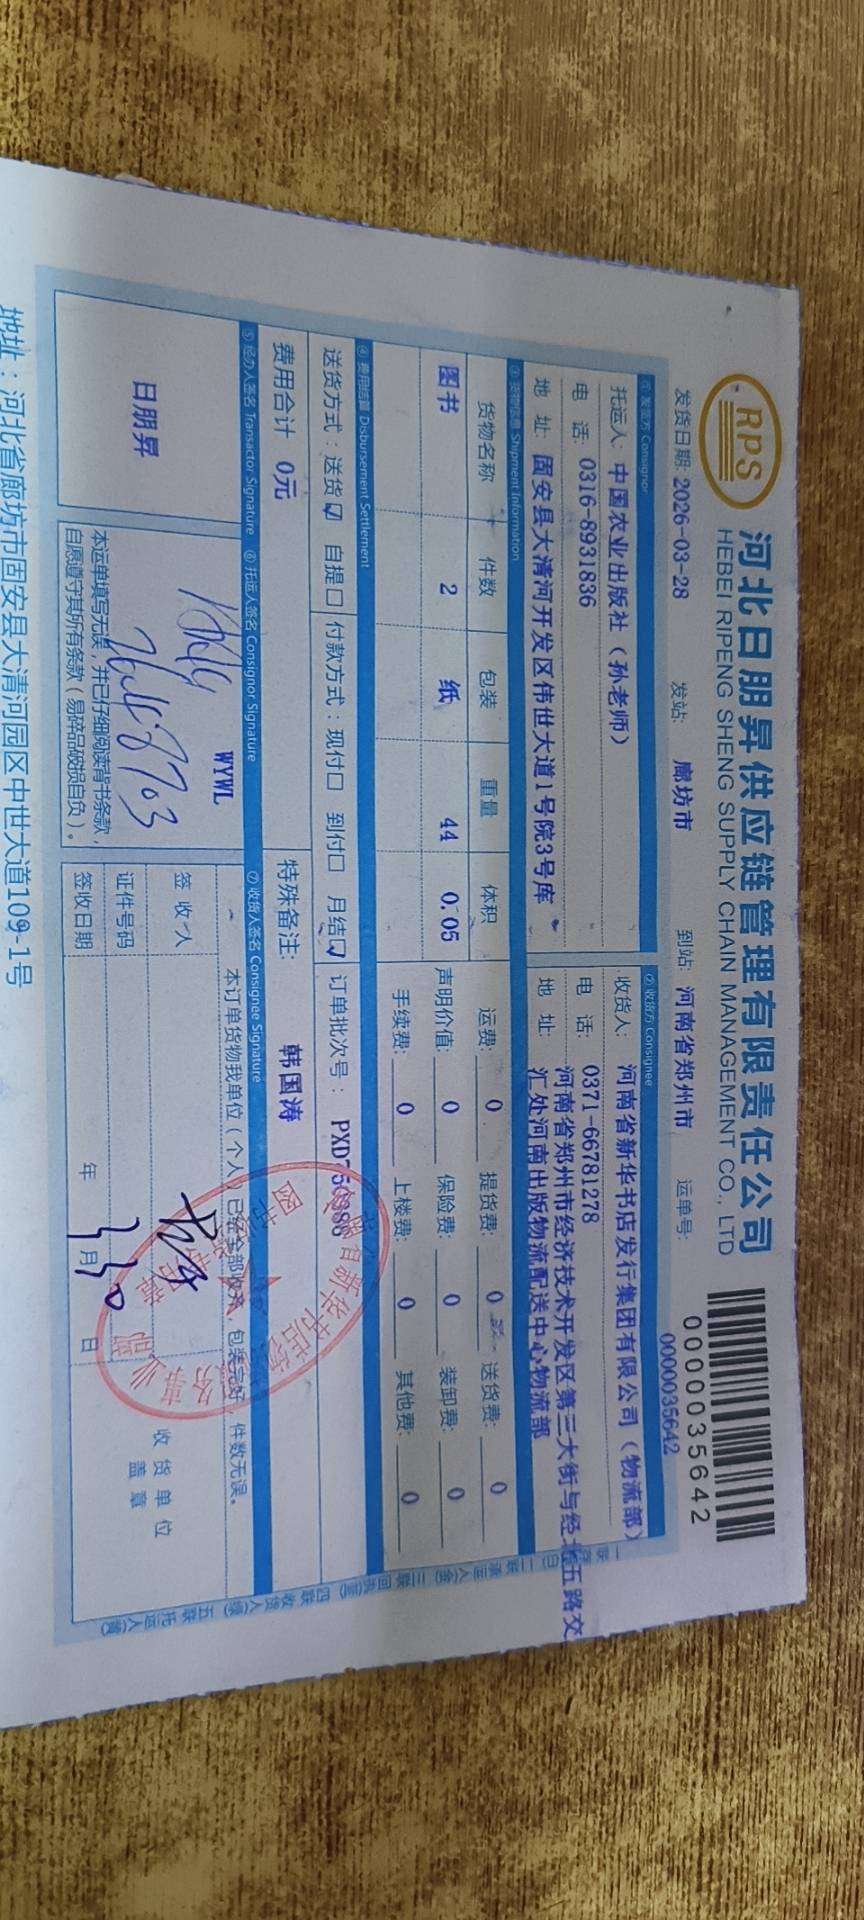 RPS
河北日朋昇供应链管理有限责任公司
HEBEI RIPENG SHENG SUPPLY CHAIN MANAGEMENT CO., LTD
0000035642
发货日期: 2026-03-28 发站: 廊坊市 到站: 河南省郑州市 运单号: 0000035642
① 发货方 Consignor
托运人: 中国农业出版社（孙老师）
电 话: 0316-8931836
地 址: 固安县大清河开发区伟世大道1号院3号库
② 收货方 Consignee
收货人: 河南省新华书店发行集团有限公司（物流部）
电 话: 0371-66781278
地 址: 河南省郑州市经济技术开发区第三大街与经北五路交
汇处河南出版物流配送中心物流部
③ 货物信息 Shipment Information
货物名称 件数 包装 重量 体积
图书 2 纸 44 0.05
运费: 0 提货费: 0 送货费: 0
声明价值: 0 保险费: 0 装卸费: 0
手续费: 0 上楼费: 0 其他费: 0
④ 费用结算 Disbursement Settlement
送货方式: 送货☑ 自提□ 付款方式: 现付□ 到付□ 月结☑ 订单批次号:
费用合计 0元 特殊备注: 韩国涛
⑤ 经办人签名 Transactor Signature ⑥ 托运人签名 Consignor Signature ⑦ 收货人签名 Consignee Signature
日朋昇
WYWL
本运单填写无误，并已仔细阅读背书条款，
自愿遵守其所有条款（易碎品破损自负）。
本订单货物我单位（个人）已经全部收齐，包装完好，件数无误。
签 收 人
证件号码
签收日期 年 3月30日
收货单位
盖 章
地址：河北省廊坊市固安县大清河园区中世大道109-1号